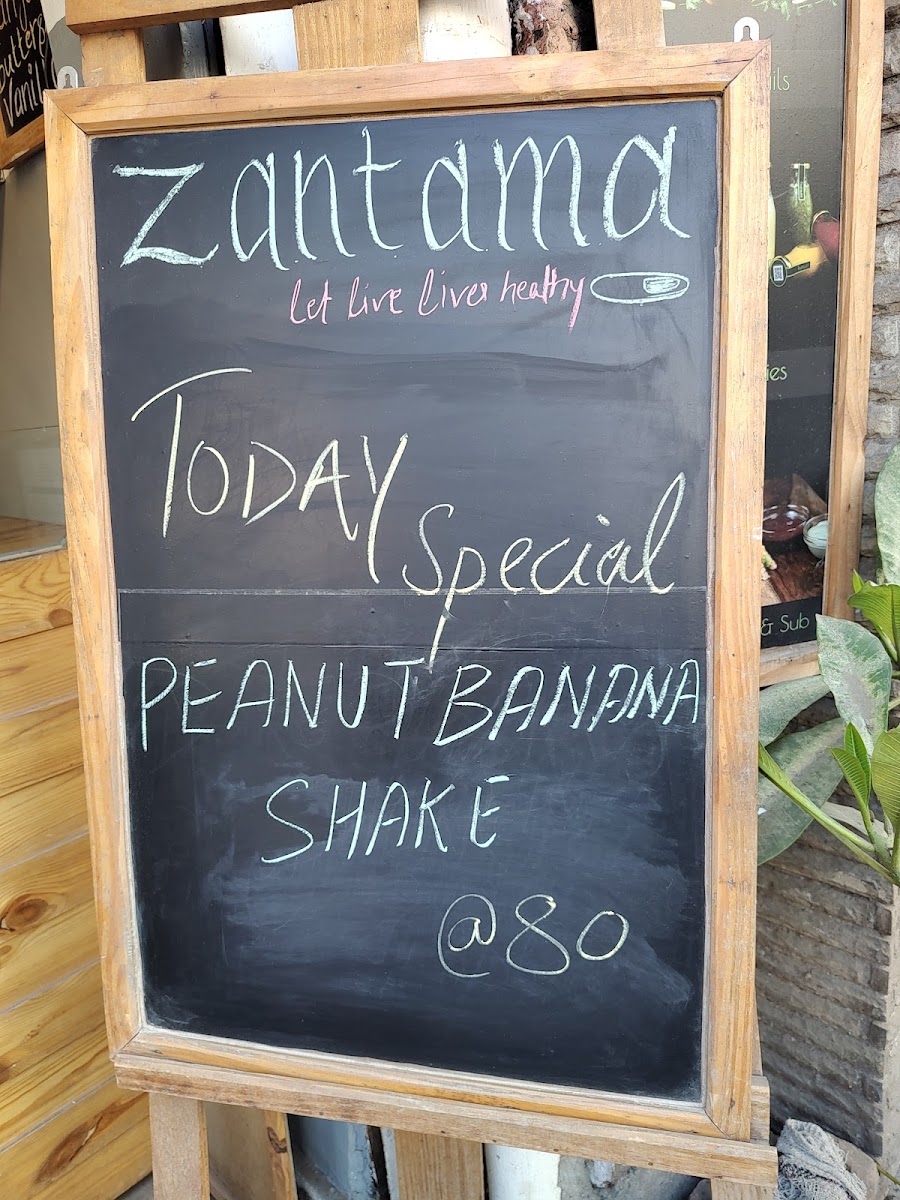 Zantama
let live lives healthy
TODAY
Special
PEANUT BANANA
SHAKE
@80
Vanil
ies
& Sub